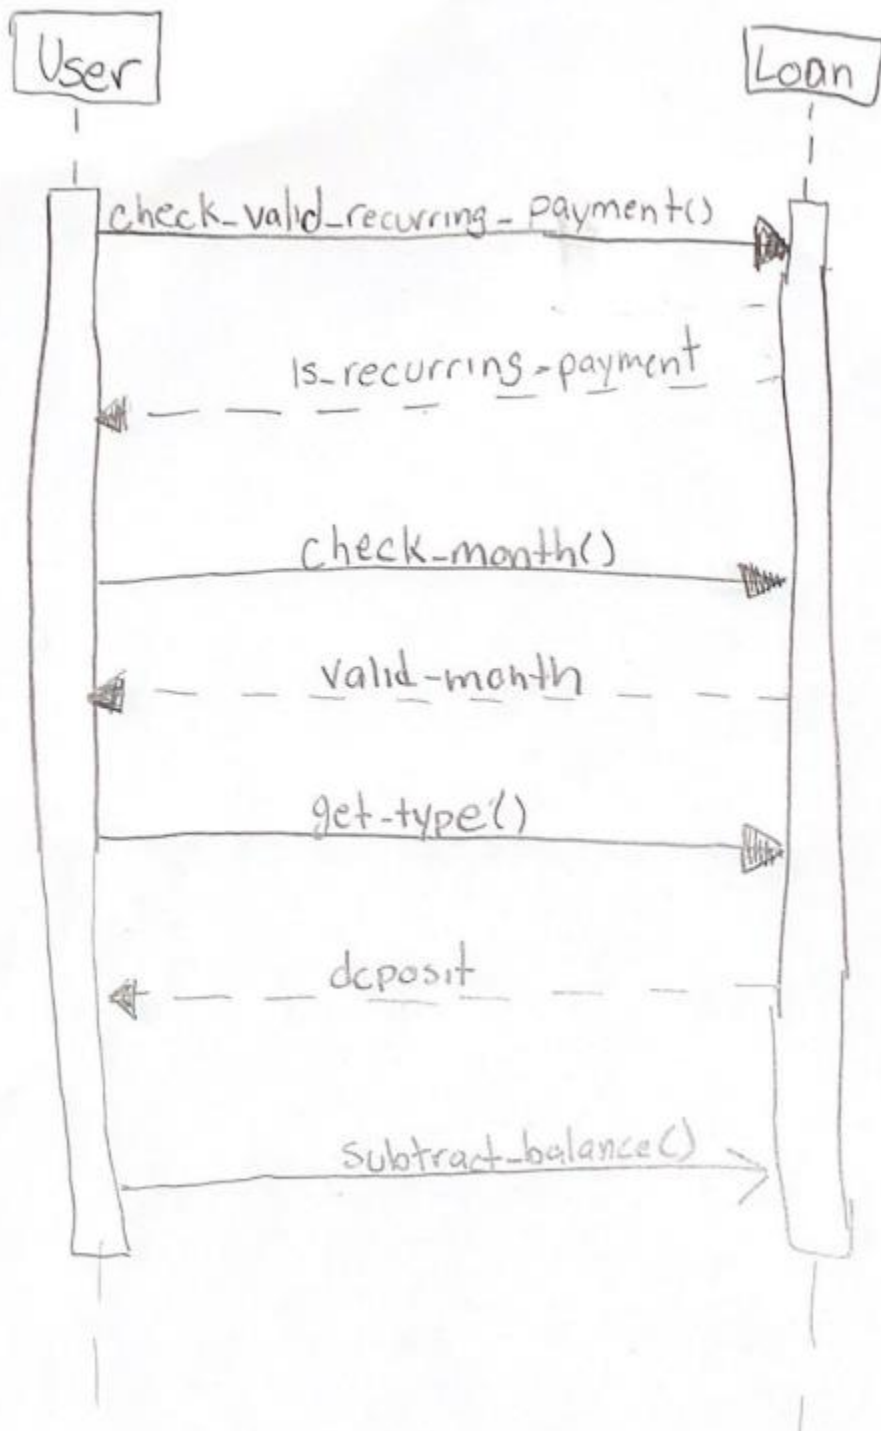 User
Loan
check_valid_recurring_payment()
is_recurring_payment
check_month()
valid_month
get_type()
deposit
subtract_balance()